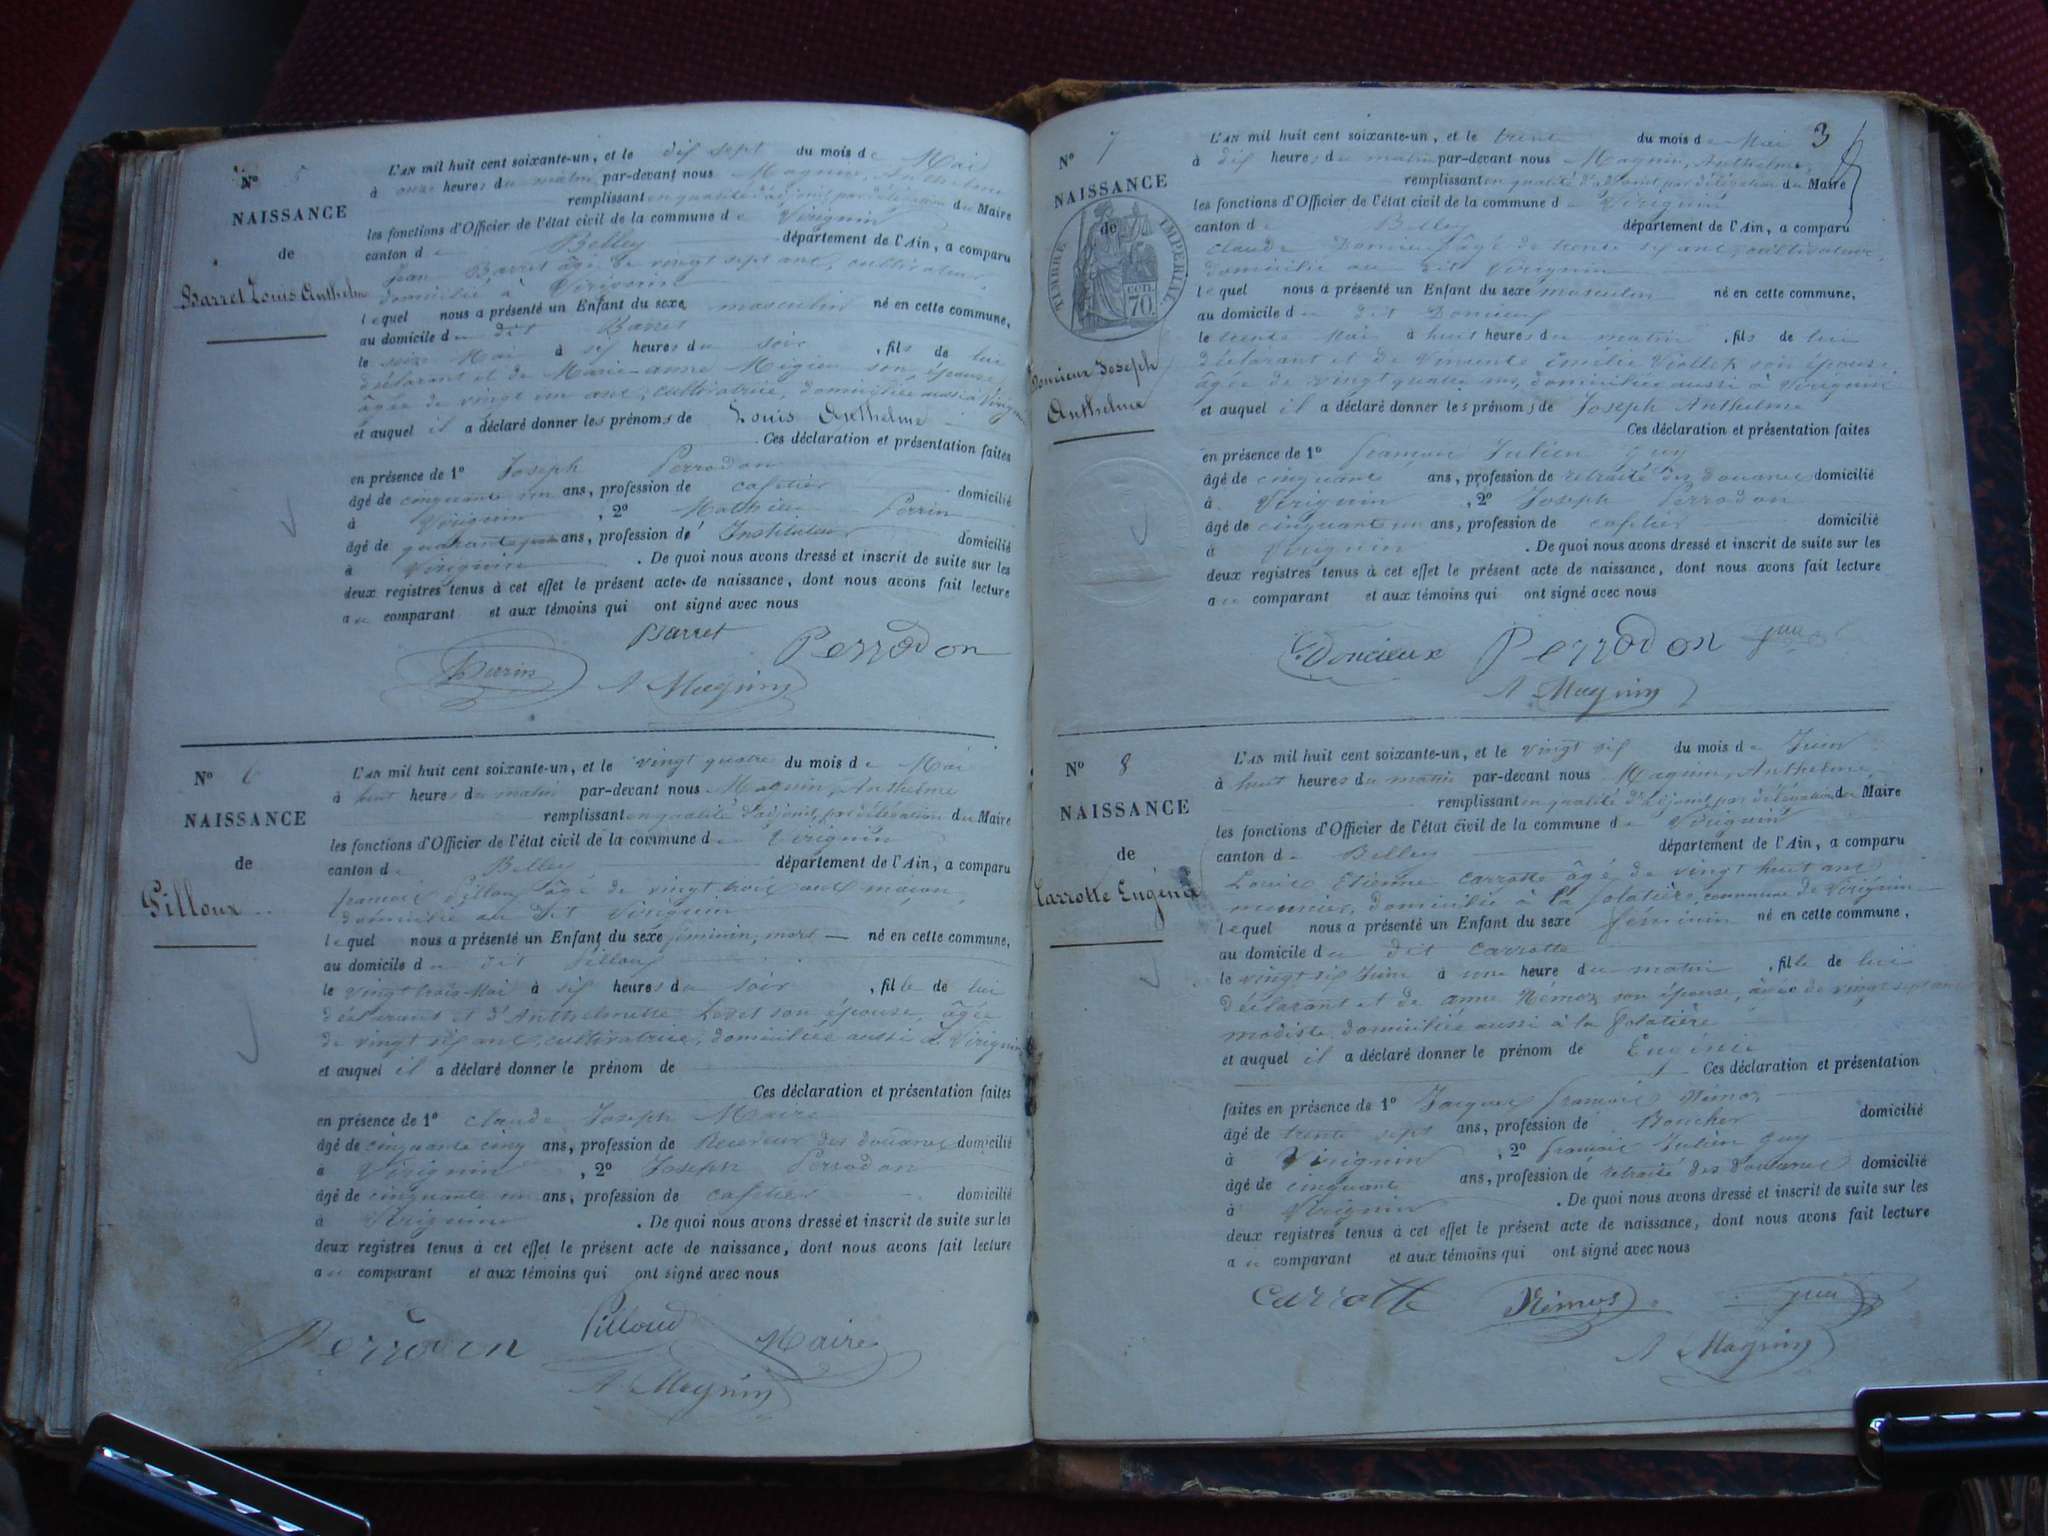 N° 5
NAISSANCE
de
Barret Louis Anthelme
L'AN mil huit cent soixante-un, et le dix sept du mois de Mai
à onze heures du matin par-devant nous Magnin, Anthelme
remplissant en qualité d'adjoint, par délégation du Maire
les fonctions d'Officier de l'état civil de la commune de Virignin
canton de Belley département de l'Ain, a comparu
Jean Barret âgé de vingt sept ans, cultivateur
domicilié à Virignin
lequel nous a présenté un Enfant du sexe masculin né en cette commune,
au domicile du dit Barret
le seize Mai à six heures du soir, fils de lui
déclarant et de Marie-anne Mégien son épouse
âgée de vingt un ans, cultivatrice, domiciliée aussi à Virignin
et auquel il a déclaré donner les prénoms de Louis Anthelme
Ces déclaration et présentation faites
en présence de 1° Joseph Perrodon
âgé de cinquante un ans, profession de cafetier domicilié
à Virignin, 2° Mathieu Perrin
âgé de quarante ans, profession d'Instituteur domicilié
à Virignin. De quoi nous avons dressé et inscrit de suite sur les
deux registres tenus à cet effet le présent acte de naissance, dont nous avons fait lecture
au comparant et aux témoins qui ont signé avec nous
Barret Perrodon
Perrin A Magnin
N° 6
NAISSANCE
de
Pilloux
L'AN mil huit cent soixante-un, et le vingt quatre du mois de Mai
à huit heures du matin par-devant nous Magnin, Anthelme
remplissant en qualité d'adjoint, par délégation du Maire
les fonctions d'Officier de l'état civil de la commune de Virignin
canton de Belley département de l'Ain, a comparu
françois Pilloux âgé de vingt trois ans maçon,
domicilié au dit Virignin
lequel nous a présenté un Enfant du sexe féminin, mort né en cette commune,
au domicile du dit Pilloux
le vingt trois Mai à six heures du soir, fille de lui
déclarant et d'Anthelmette son épouse, âgée
de vingt six ans, cultivatrice, domiciliée aussi à Virignin
et auquel il a déclaré donner le prénom de
Ces déclaration et présentation faites
en présence de 1° Claude Joseph Maire
âgé de cinquante cinq ans, profession de Receveur des douanes domicilié
à Virignin, 2° Joseph Perrodon
âgé de cinquante un ans, profession de cafetier domicilié
à Virignin. De quoi nous avons dressé et inscrit de suite sur les
deux registres tenus à cet effet le présent acte de naissance, dont nous avons fait lecture
au comparant et aux témoins qui ont signé avec nous
Perrodon Pilloud Maire
A Magnin
3
N° 7
NAISSANCE
de
TIMBRE IMPERIAL
cen. 70.
Doncieux Joseph
Anthelme
L'AN mil huit cent soixante-un, et le trente du mois de Mai
à dix heures du matin par-devant nous Magnin, Anthelme,
remplissant en qualité d'adjoint, par délégation du Maire
les fonctions d'Officier de l'état civil de la commune de Virignin
canton de Belley département de l'Ain, a comparu
Claude Doncieux âgé de trente six ans, cultivateur,
domicilié au dit Virignin
lequel nous a présenté un Enfant du sexe masculin né en cette commune,
au domicile du dit Doncieux
le trente Mai à huit heures du matin, fils de lui
déclarant et de Emélie Viollet son épouse,
âgée de vingt quatre ans, domiciliée aussi à Virignin
et auquel il a déclaré donner les prénoms de Joseph Anthelme
Ces déclaration et présentation faites
en présence de 1° françois Julien Guy
âgé de cinquante ans, profession de retraité des douanes domicilié
à Virignin, 2° Joseph Perrodon
âgé de cinquante un ans, profession de cafetier domicilié
à Virignin. De quoi nous avons dressé et inscrit de suite sur les
deux registres tenus à cet effet le présent acte de naissance, dont nous avons fait lecture
au comparant et aux témoins qui ont signé avec nous
C. Doncieux Perrodon Guy
A Magnin
N° 8
NAISSANCE
de
Carrotte Eugénie
L'AN mil huit cent soixante-un, et le vingt six du mois de Juin
à huit heures du matin par-devant nous Magnin, Anthelme,
remplissant en qualité d'adjoint, par délégation du Maire
les fonctions d'Officier de l'état civil de la commune de Virignin
canton de Belley département de l'Ain, a comparu
Louis Etienne Carrotte âgé de vingt huit ans
meunier, domicilié à la folatière, commune de Virignin
lequel nous a présenté un Enfant du sexe féminin né en cette commune,
au domicile du dit Carrotte
le vingt six Juin à une heure du matin, fille de lui
déclarant et de anne Rémoz son épouse, âgée de vingt sept ans
modiste, domiciliée aussi à la folatière
et auquel il a déclaré donner le prénom de Eugénie
Ces déclaration et présentation
faites en présence de 1° Jacques françois Rémoz
âgé de trente sept ans, profession de Boucher domicilié
à Virignin, 2° françois Julien Guy
âgé de cinquante ans, profession de retraité des Douanes domicilié
à Virignin. De quoi nous avons dressé et inscrit de suite sur les
deux registres tenus à cet effet le présent acte de naissance, dont nous avons fait lecture
au comparant et aux témoins qui ont signé avec nous
Carrotte Rémos Guy
A Magnin